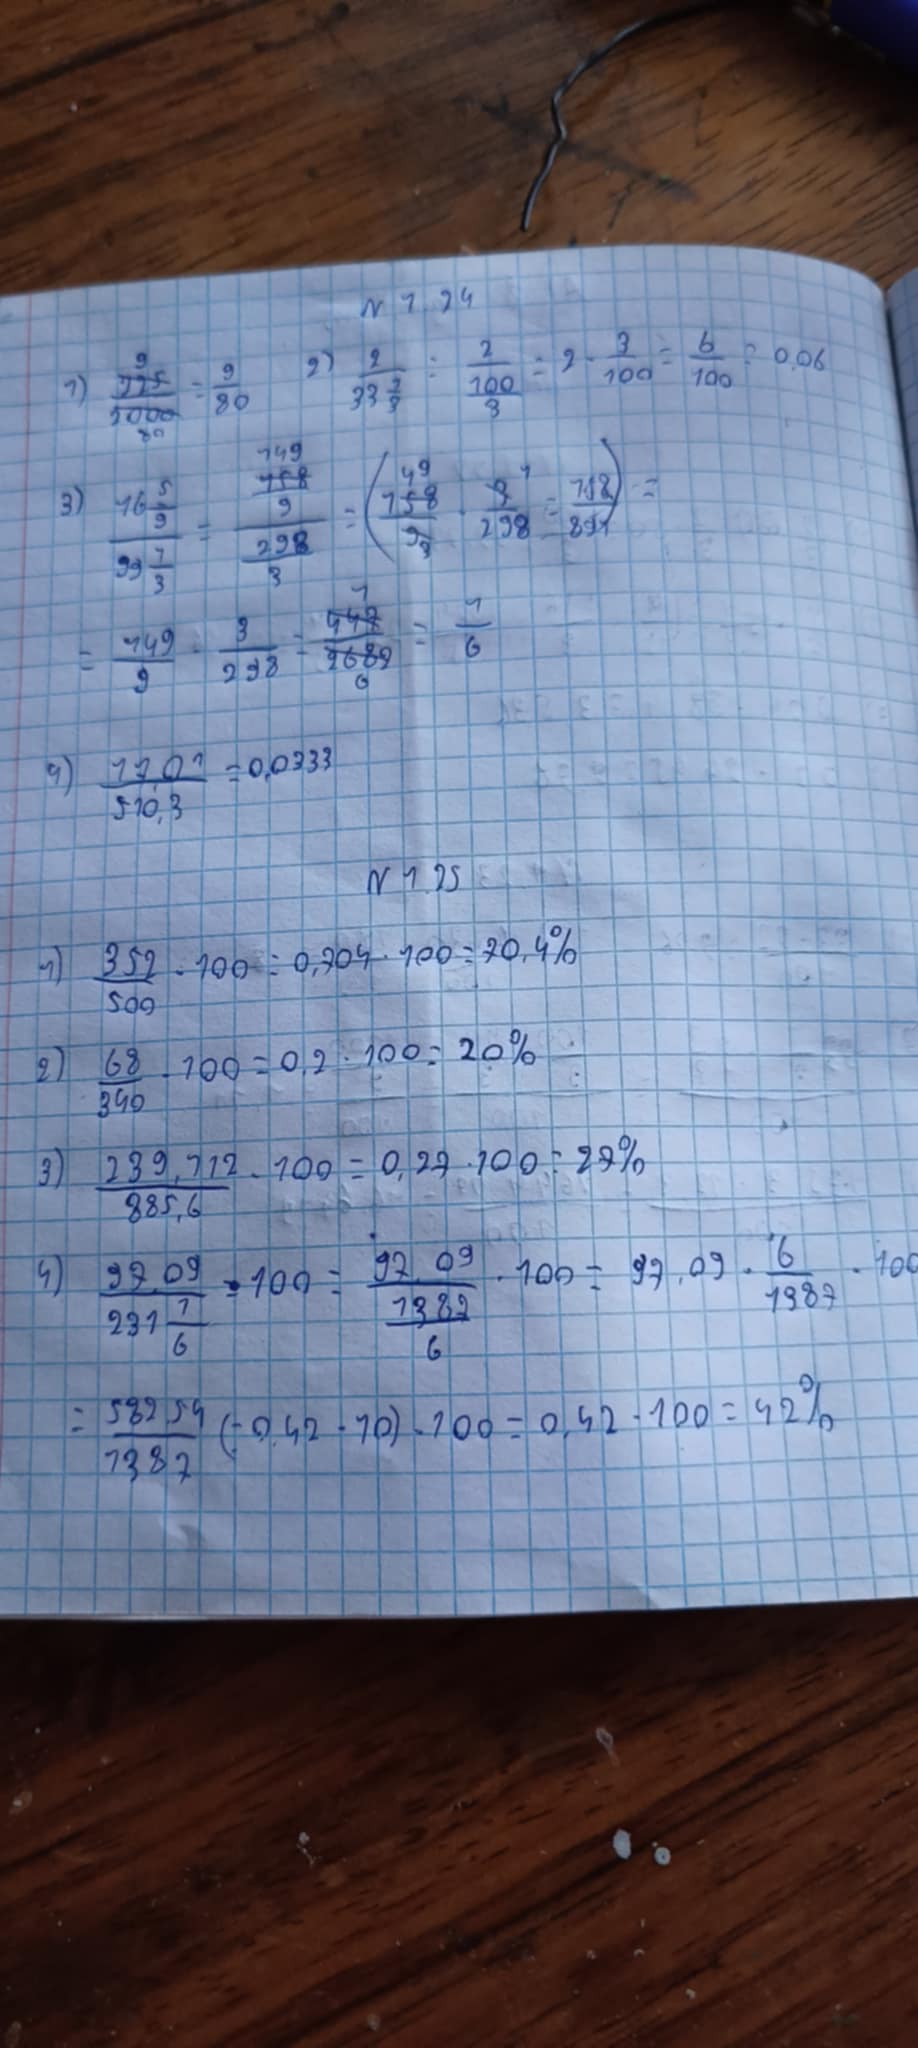 N 1.24
1) 225/2000 = 9/80 2) 2/33 1/3 = 2/100/3 = 2 · 3/100 = 6/100 = 0,06
3) 16 5/9 / 99 1/3 = 149/9 / 298/3 = (158/9 · 3/298 = 158/891) =
= 149/9 · 3/298 = 447/2682 = 1/6
4) 17,01/510,3 = 0,0333
N 1.25
1) 352/500 · 100 = 0,704 · 100 = 70,4%
2) 68/340 · 100 = 0,2 · 100 = 20%
3) 239,112/885,6 · 100 = 0,27 · 100 = 27%
4) 97,09/231 1/6 · 100 = 97,09/1387/6 · 100 = 97,09 · 6/1387 · 100
= 58254/1387 (= 0,42 · 10) · 100 = 0,42 · 100 = 42%